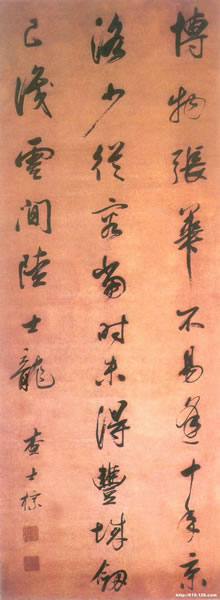 博物張華不易逢十年京
洛少從容當时未得豐城劔
已識雲間陸士龍
查士標